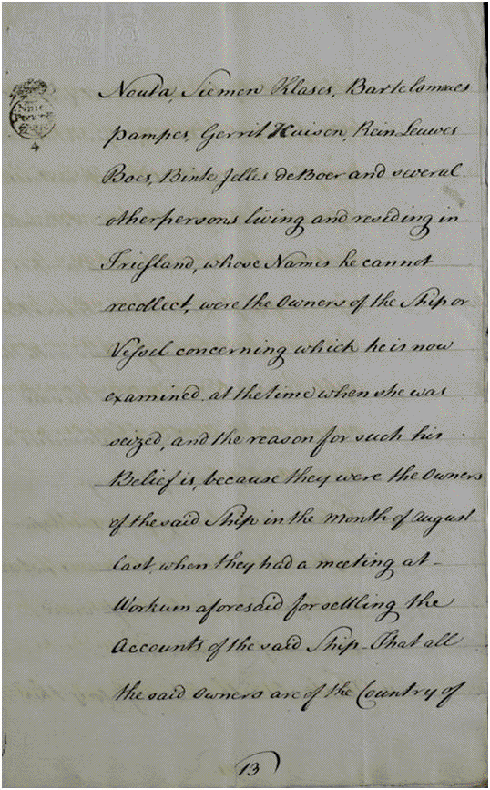 Nauta, Siemen Klases, Bartelomeus
Pampes, Gerrit Huisen, Rein Leuwes
Boes, Binte Jelles de Boer and several
other persons living and residing in
Friesland, whose Names he cannot
recollect, were the Owners of the Ship or
Vessel concerning which he is now
examined, at the time when she was
seized, and the reason for such his
Belief is, because they were the Owners
of the said Ship in the Month of August
last, when they had a meeting at
Workum aforesaid for settling the
Accounts of the said Ship. That all
the said Owners are of the Country of
13